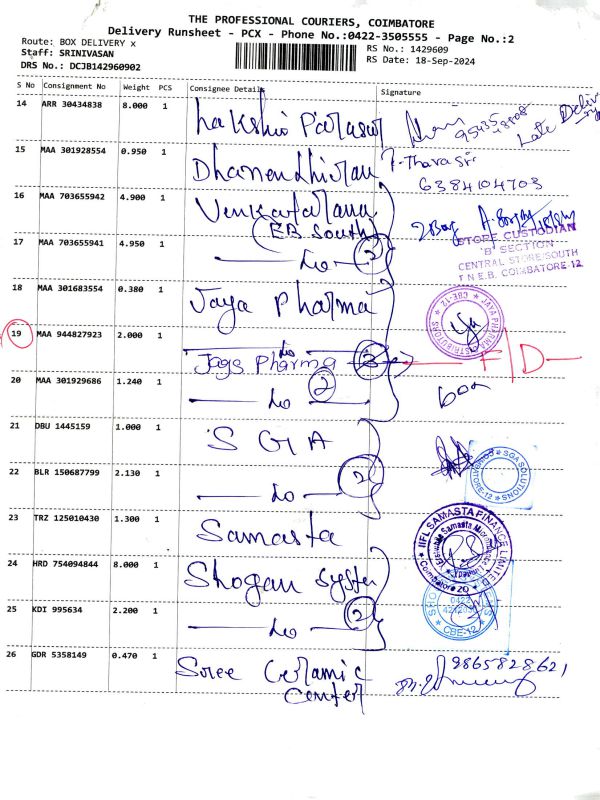 THE PROFESSIONAL COURIERS, COIMBATORE
Delivery Runsheet - PCX - Phone No.:0422-3505555 - Page No.:2
Route: BOX DELIVERY x
RS No.: 1429609
Staff: SRINIVASAN
RS Date: 18-Sep-2024
DRS No.: DCJB142960902
S No Consignment No Weight PCS Consignee Details Signature
14 ARR 30434838 8.000 1 Lakshio Parasur
Late
15 MAA 301928554 0.950 1 Dhanendhiran
6384104703
16 MAA 703655942 4.900 1 Venkatarana
(EB South)
2 Box
STORE CUSTODIAN
'B' SECTION
CENTRAL STORE/SOUTH
T N E.B, COIMBATORE-12
17 MAA 703655941 4.950 1 Do 2
18 MAA 301683554 0.380 1 Jaya Pharma
JAYA PHARMA DISTRIBUTORS CBE-12
19 MAA 944827923 2.000 1 Do
Jags Pharma
20 MAA 301929686 1.240 1 Do 2
box
21 DBU 1445159 1.000 1 S G A
SGA SOLUTIONS
22 BLR 150687799 2.130 1 Do 2
23 TRZ 125010430 1.300 1 Samasta
IIFL SAMASTA FINANCE LIMITED
Coimbatore ZO
24 HRD 754094844 8.000 1 Shogan System
25 KDI 995634 2.200 1 Do 2
CBE-12
26 GDR 5358149 0.470 1 Sree Ceramic
Center
9865828621